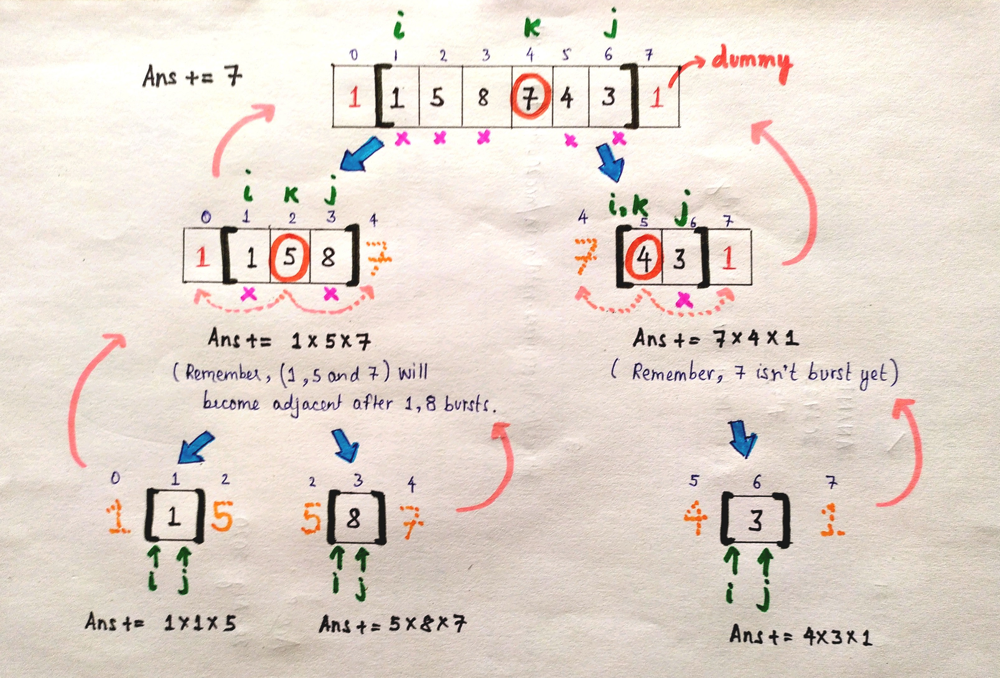 i k j
0 1 2 3 4 5 6 7
dummy
Ans += 7
1 [ 1 5 8 7 4 3 ] 1
x x x x x
i k j
0 1 2 3 4
1 [ 1 5 8 ] 7
x x
i,k j
4 5 6 7
7 [ 4 3 ] 1
x
Ans += 1 x 5 x 7
(Remember, (1, 5 and 7) will
become adjacent after 1, 8 bursts.
Ans += 7 x 4 x 1
( Remember, 7 isn't burst yet)
0 1 2
1 [ 1 ] 5
i j
Ans += 1 x 1 x 5
2 3 4
5 [ 8 ] 7
i j
Ans += 5 x 8 x 7
5 6 7
4 [ 3 ] 1
i j
Ans += 4 x 3 x 1